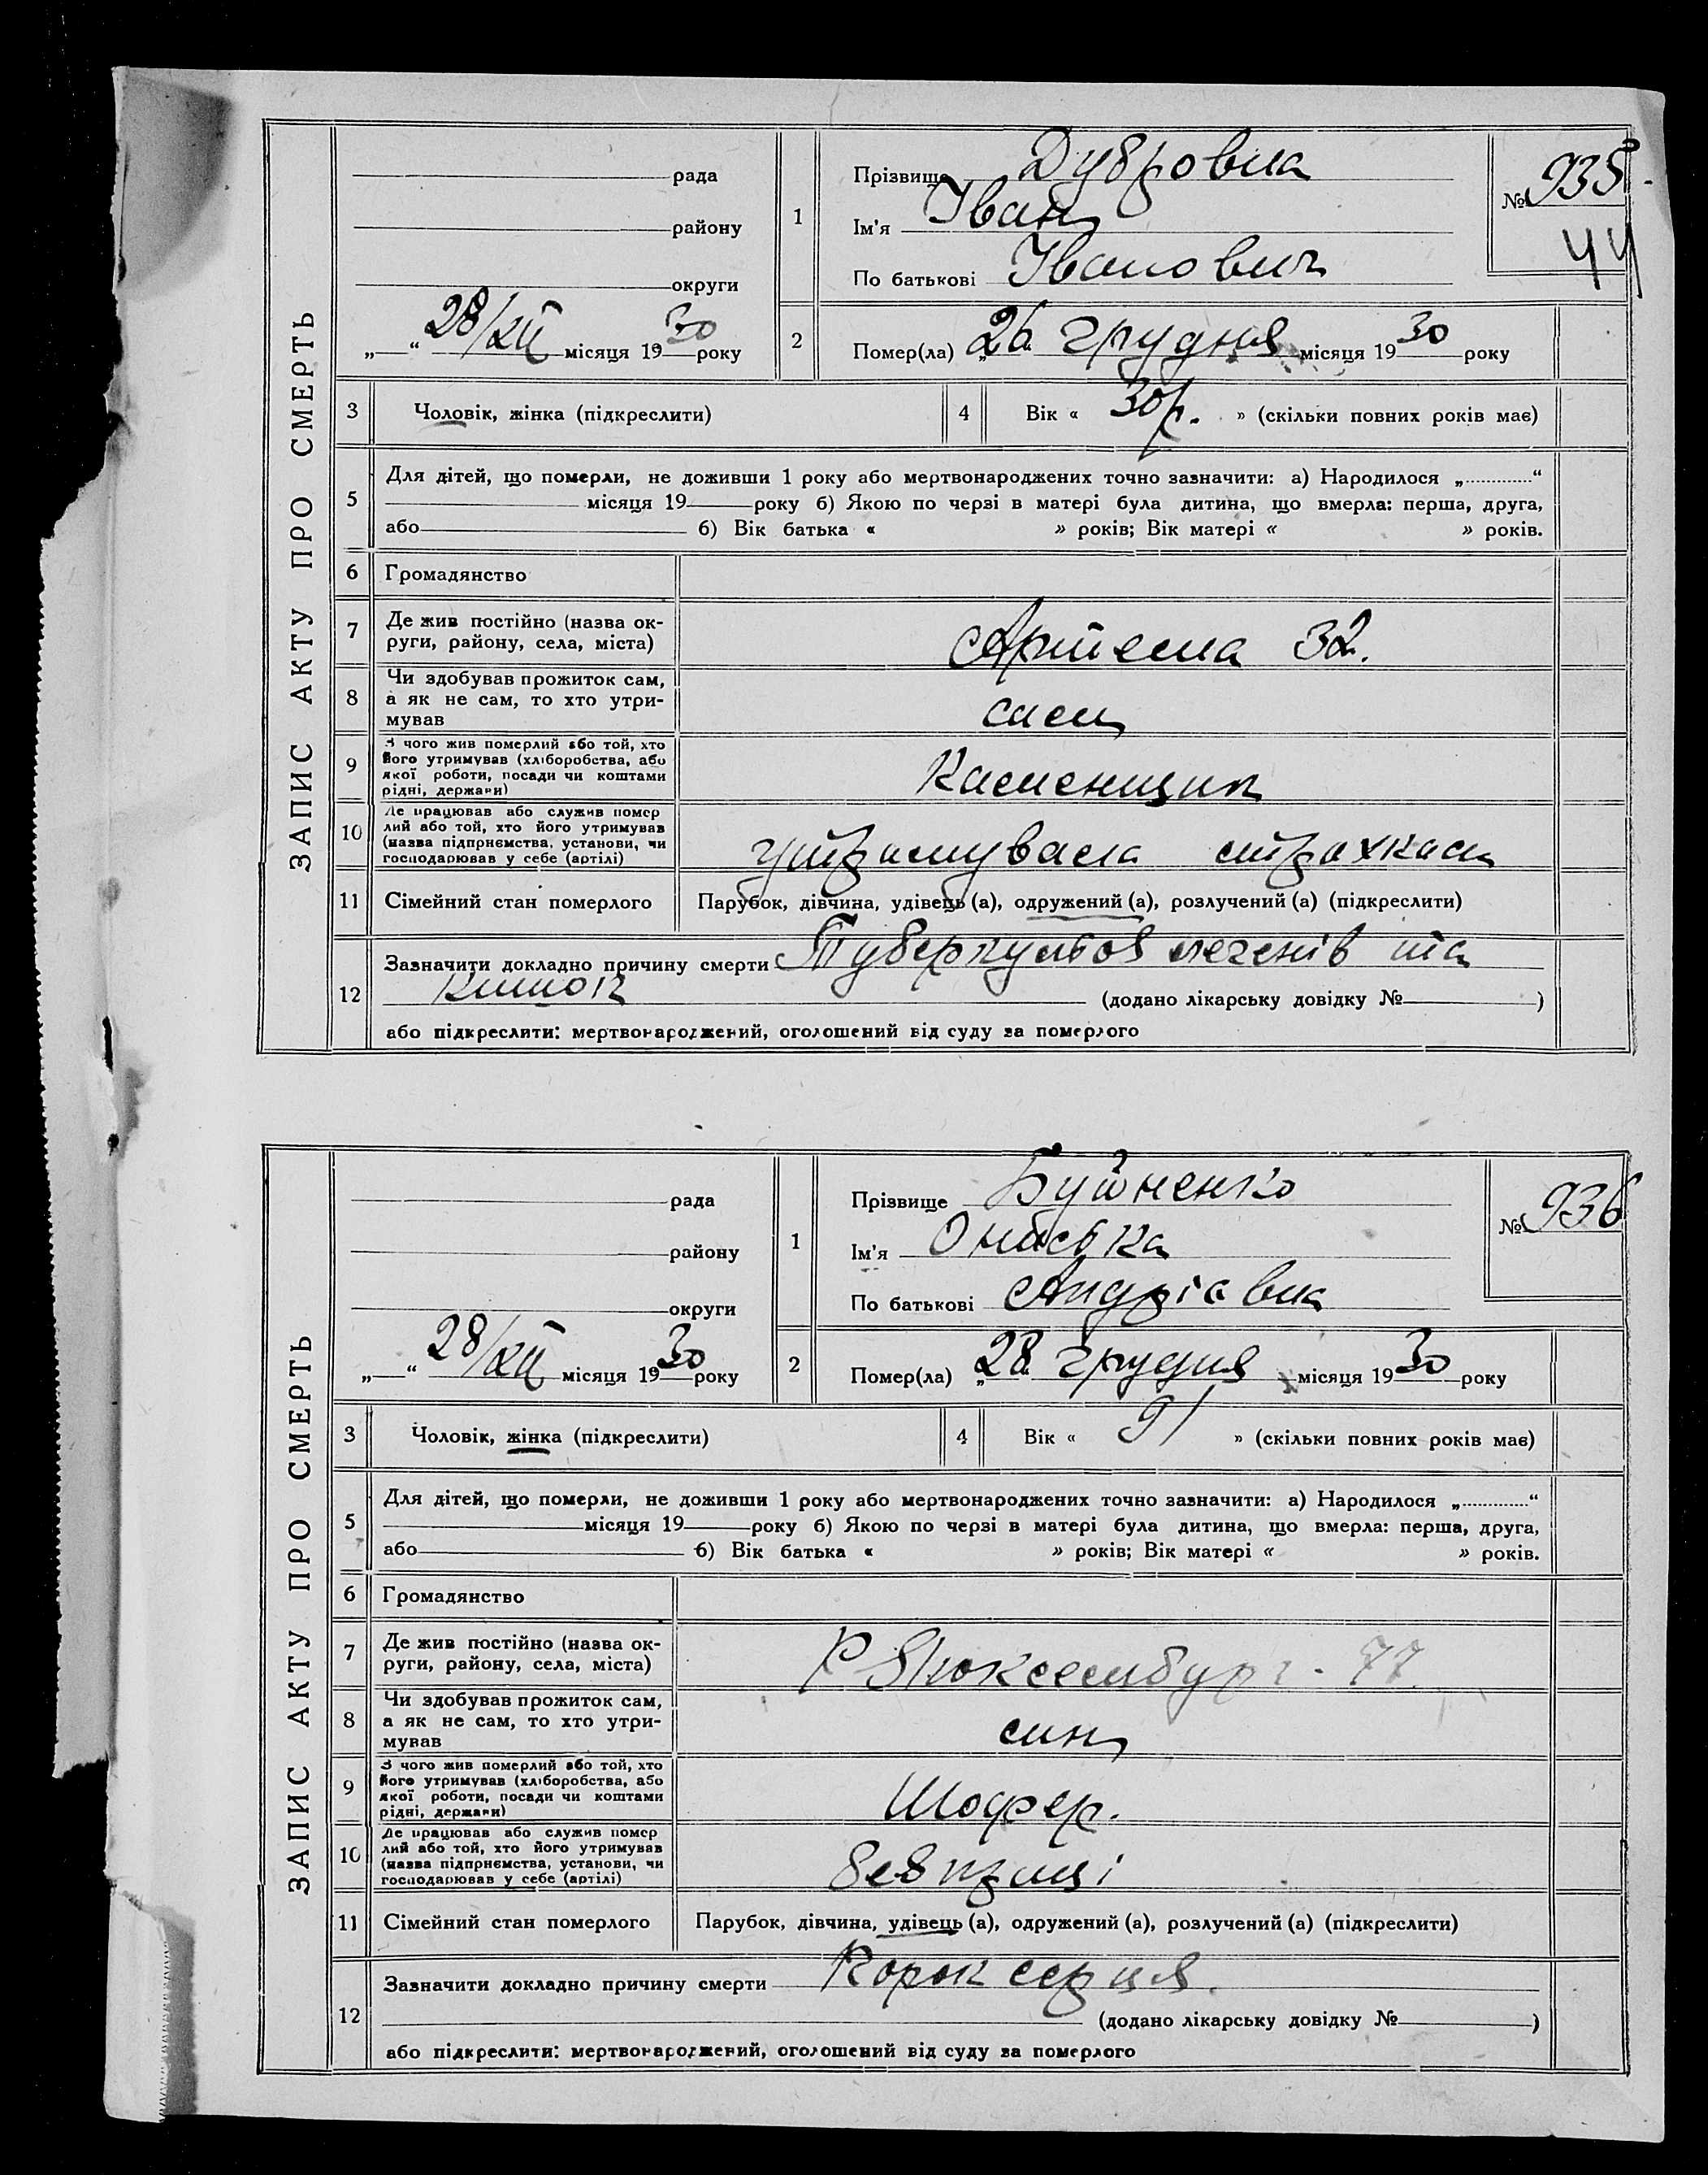 ЗАПИС АКТУ ПРО СМЕРТЬ
рада
району
округи
„ “ 28/XII місяця 1930 року
1
Прізвище Дубровка
Ім'я Іван
По батькові Іванович
№ 935
44
2
Помер(ла) „26 грудня місяця 1930 року
3
Чоловік, жінка (підкреслити)
4
Вік « 30 р. » (скільки повних років має)
5
Для дітей, що померли, не доживши 1 року або мертвонароджених точно зазначити: а) Народилося „.............“
місяця 19 року б) Якою по черзі в матері була дитина, що вмерла: перша, друга,
або б) Вік батька « » років; Вік матері « » років.
6
Громадянство
7
Де жив постійно (назва ок-
руги, району, села, міста)
Артема 32.
8
Чи здобував прожиток сам,
а як не сам, то хто утри-
мував
сам
9
З чого жив померлий або той, хто
його утримував (хліборобства, або
якої роботи, посади чи коштами
рідні, держави)
Каменщик
10
Де працював або служив помер
лий або той, хто його утримував
(назва підприємства, установи, чи
господарював у себе (артілі)
утримувала страхкаса
11
Сімейний стан померлого
Парубок, дівчина, удівець (а), одружений (а), розлучений (а) (підкреслити)
12
Зазначити докладно причину смерти Туберкульоз легенів та
кишок (додано лікарську довідку № )
або підкреслити: мертвонароджений, оголошений від суду за померлого
ЗАПИС АКТУ ПРО СМЕРТЬ
рада
району
округи
„ “ 28/XII місяця 1930 року
1
Прізвище
Ім'я Ониська
По батькові Андріївна
№ 936
2
Помер(ла) „28 грудня місяця 1930 року
3
Чоловік, жінка (підкреслити)
4
Вік « 91 » (скільки повних років має)
5
Для дітей, що померли, не доживши 1 року або мертвонароджених точно зазначити: а) Народилося „.............“
місяця 19 року б) Якою по черзі в матері була дитина, що вмерла: перша, друга,
або б) Вік батька « » років; Вік матері « » років.
6
Громадянство
7
Де жив постійно (назва ок-
руги, району, села, міста)
Р Люксембург. 77
8
Чи здобував прожиток сам,
а як не сам, то хто утри-
мував
син
9
З чого жив померлий або той, хто
його утримував (хліборобства, або
якої роботи, посади чи коштами
рідні, держави)
Шофер.
10
Де працював або служив помер
лий або той, хто його утримував
(назва підприємства, установи, чи
господарював у себе (артілі)
11
Сімейний стан померлого
Парубок, дівчина, удівець (а), одружений (а), розлучений (а) (підкреслити)
12
Зазначити докладно причину смерти серця.
(додано лікарську довідку № )
або підкреслити: мертвонароджений, оголошений від суду за померлого